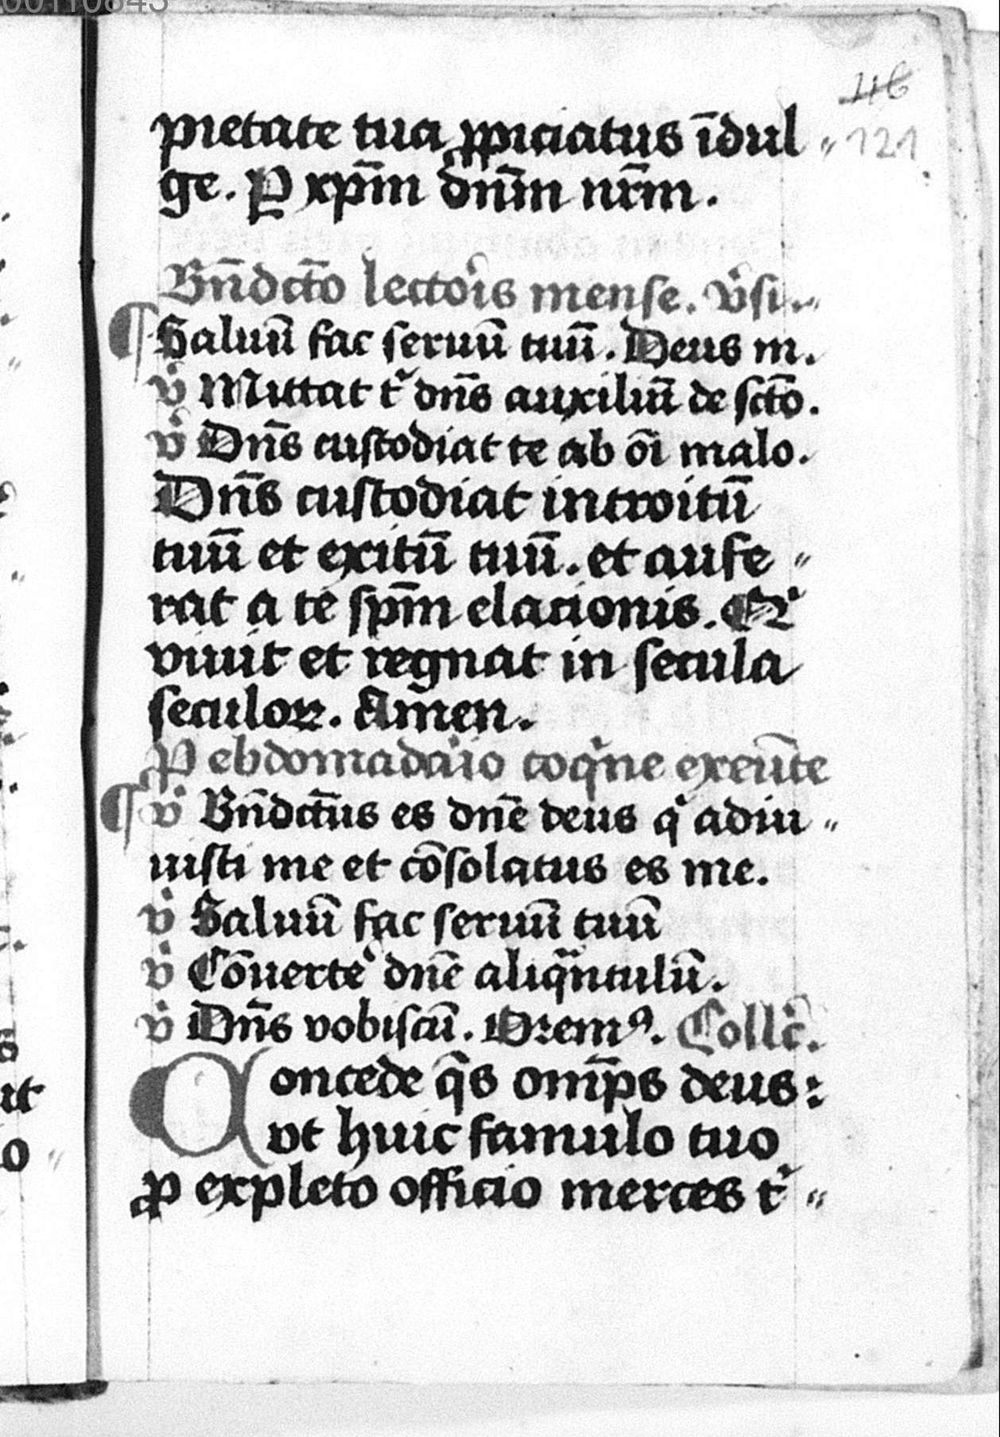 00110843
116
pietate tua ꝓpiciatus īdul〃 121
ge. P̱ xp̄m dn̄m nr̄m.
Bn̄dctō lectoris mense. v̓si.
¶ Saluū fac seruū tuū. Deus m.
v̓ Mittat tⁱ dn̄s auxiliū de sctō.
v̓ Dn̄s custodiat te ab oī malo.
Dn̄s custodiat introitū
tuū et exitū tuū. et aufe〃
rat a te sp̄m elacionis. Qⁱ
viuit et regnat in secula
seculoꝝ. Amen.
P ebdomadario coqⁱne exeūte
¶ v̓ Bn̄dctūs es dn̄e deus qⁱ adiu〃
uisti me et cōsolatus es me.
v̓ Saluū fac seruū tuū
v̓ Cōuerte dn̄e aliqᵃntulū.
v̓ Dn̄s vobiscū. Oremꝰ. Collc̄.
Concede qs̄ omīps deus:
vt huic famulo tuo
ꝓ expleto officio merces tⁱ〃